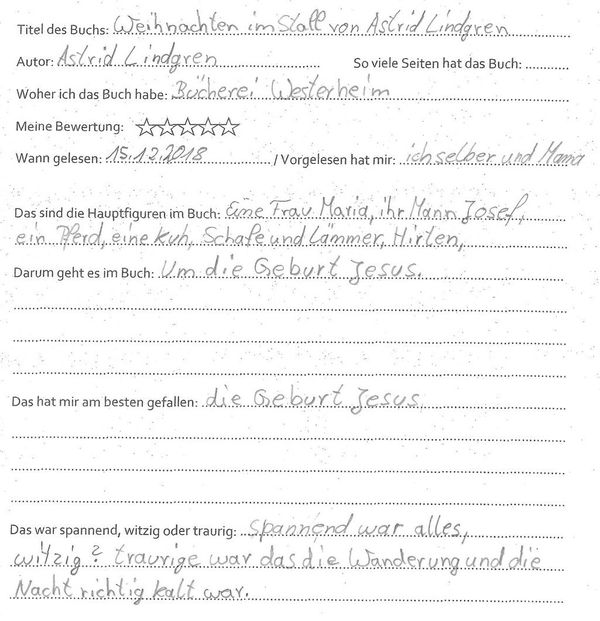 Titel des Buchs: Weihnachten im Stall von Astrid Lindgren
Autor: Astrid Lindgren So viele Seiten hat das Buch: ............
Woher ich das Buch habe: Bücherei Westerheim
Meine Bewertung: ☆☆☆☆☆
Wann gelesen: 15.12.2018 / Vorgelesen hat mir: ich selber und Mama
Das sind die Hauptfiguren im Buch: Eine Frau Maria, ihr Mann Josef,
ein Pferd, eine Kuh, Schafe und Lämmer, Hirten,
Darum geht es im Buch: Um die Geburt Jesus.
Das hat mir am besten gefallen: die Geburt Jesus
Das war spannend, witzig oder traurig: spannend war alles,
witzig? traurige war das die Wanderung und die
Nacht richtig kalt war.